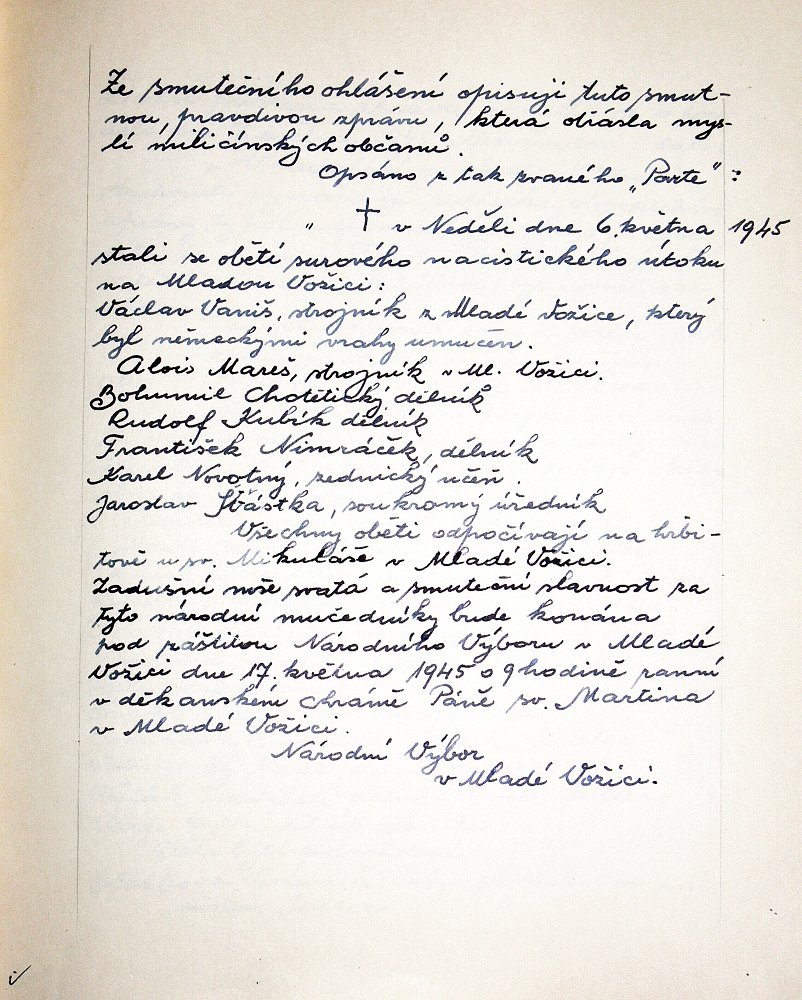 Ze smutečního ohlášení opisuji tuto smut-
nou, pravdivou zprávu, která otřásla mys-
lí miličínských občanů.
Opsáno z tak zvaného „Parte" :
" † v Neděli dne 6. května 1945
stali se obětí surového nacistického útoku
na Mladou Vožici:
Václav Vaniš, strojník z Mladé Vožice, který
byl německými vrahy umučen.
Alois Mareš, strojník v Ml. Vožici.
Bohumil Chotětický dělník
Rudolf Kubík dělník
František Nimráček, dělník
Karel Novotný, zednický učeň.
Jaroslav Šťástka, soukromý úředník
Všechny oběti odpočívají na hřbi-
tově u sv. Mikuláše v Mladé Vožici.
Zadušní mše svatá a smuteční slavnost za
tyto národní mučedníky bude konána
pod záštitou Národního Výboru v Mladé
Vožici dne 17. května 1945 o 9 hodině ranní
v děkanském chrámě Páně sv. Martina
v Mladé Vožici.
Národní Výbor
v Mladé Vožici.